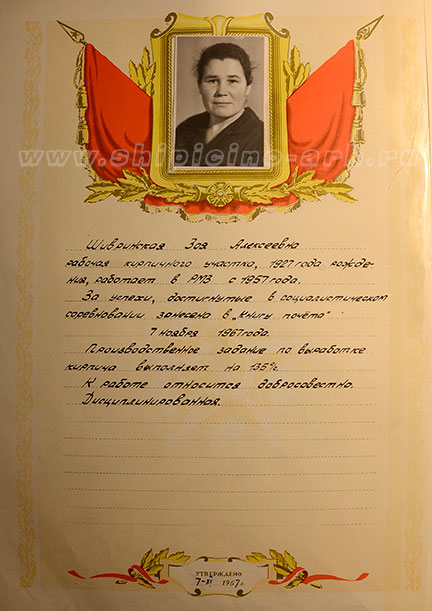 www.shipicino-arh.ru
Шивринская Зоя Алексеевна
рабочая кирпичного участка, 1927 года рожде-
ния, работает в РМЗ с 1957 года.
За успехи, достигнутые в социалистическом
соревновании занесена в „Книгу почёта"
7 ноября 1967 года.
Производственное задание по выработке
кирпича выполняет на 135%.
К работе относится добросовестно.
Дисциплинированная.
УТВЕРЖДЕНО
7-XI 1967 г.